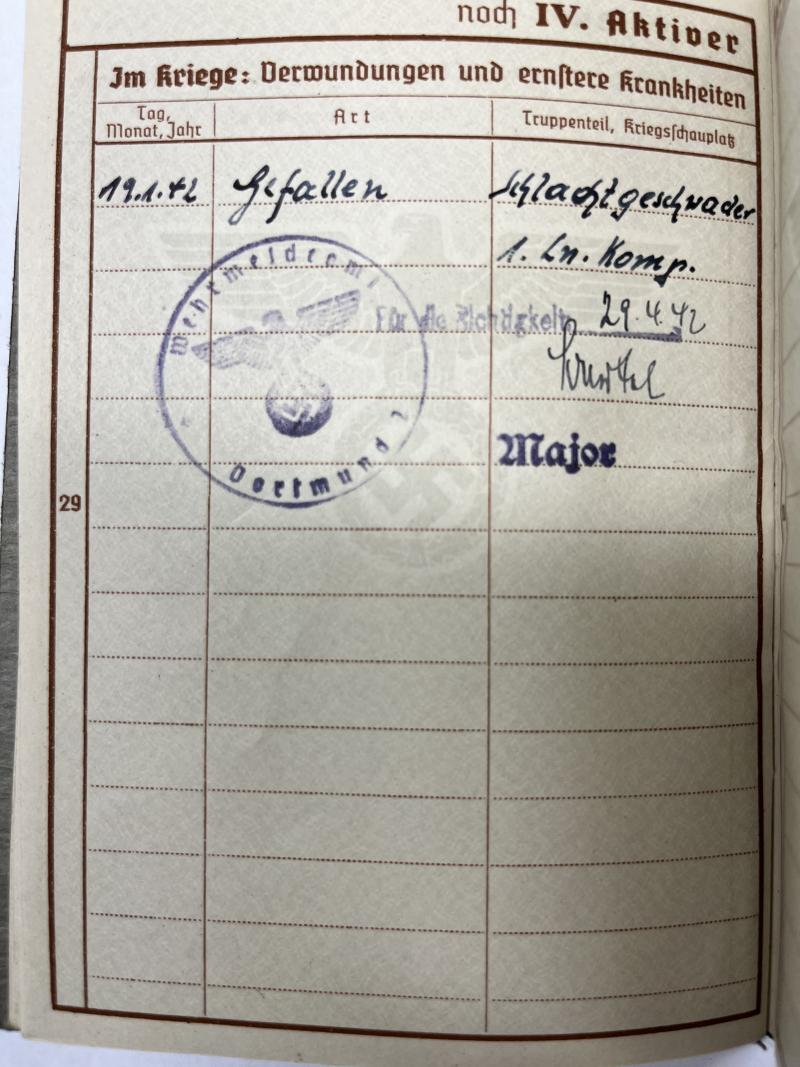 noch IV. Aktiver
Im Kriege: Verwundungen und ernstere Krankheiten
Tag, Monat, Jahr
Art
Truppenteil, Kriegsschauplatz
19.1.42 Gefallen Schlachtgeschwader
1. Ln. Komp.
Wehrmeldeamt
Für die Richtigkeit 29.4.42
Major
Dortmund 2
29